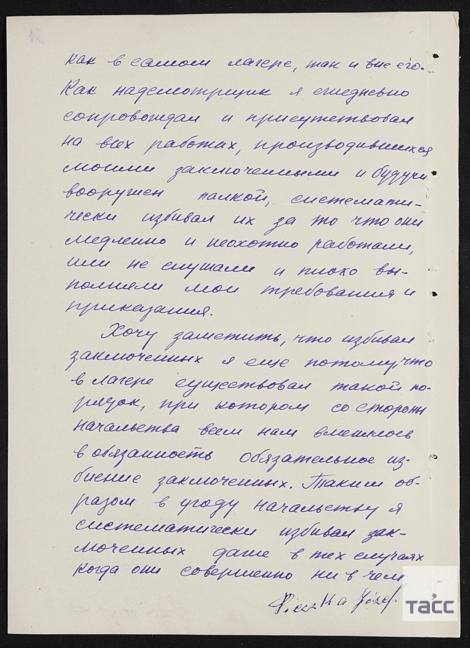 как в самом лагере, так и вне его.
Как надсмотрщик я ежедневно
сопровождал и присутствовал
на всех работах, производившихся
моими заключенными и будучи
вооружен палкой, системати-
чески избивал их за то что они
медленно и неохотно работали,
или не слушали и плохо вы-
полняли мои требования и
приказания.
Хочу заметить, что избивал
заключенных я еще потому, что
в лагере существовал такой по-
рядок, при котором со стороны
начальства всем нам вменялось
в обязанность обязательное из-
биение заключенных. Таким об-
разом в угоду начальству я
систематически избивал зак-
люченных даже в тех случаях
когда они совершенно ни в чем
Józef
ТАСС